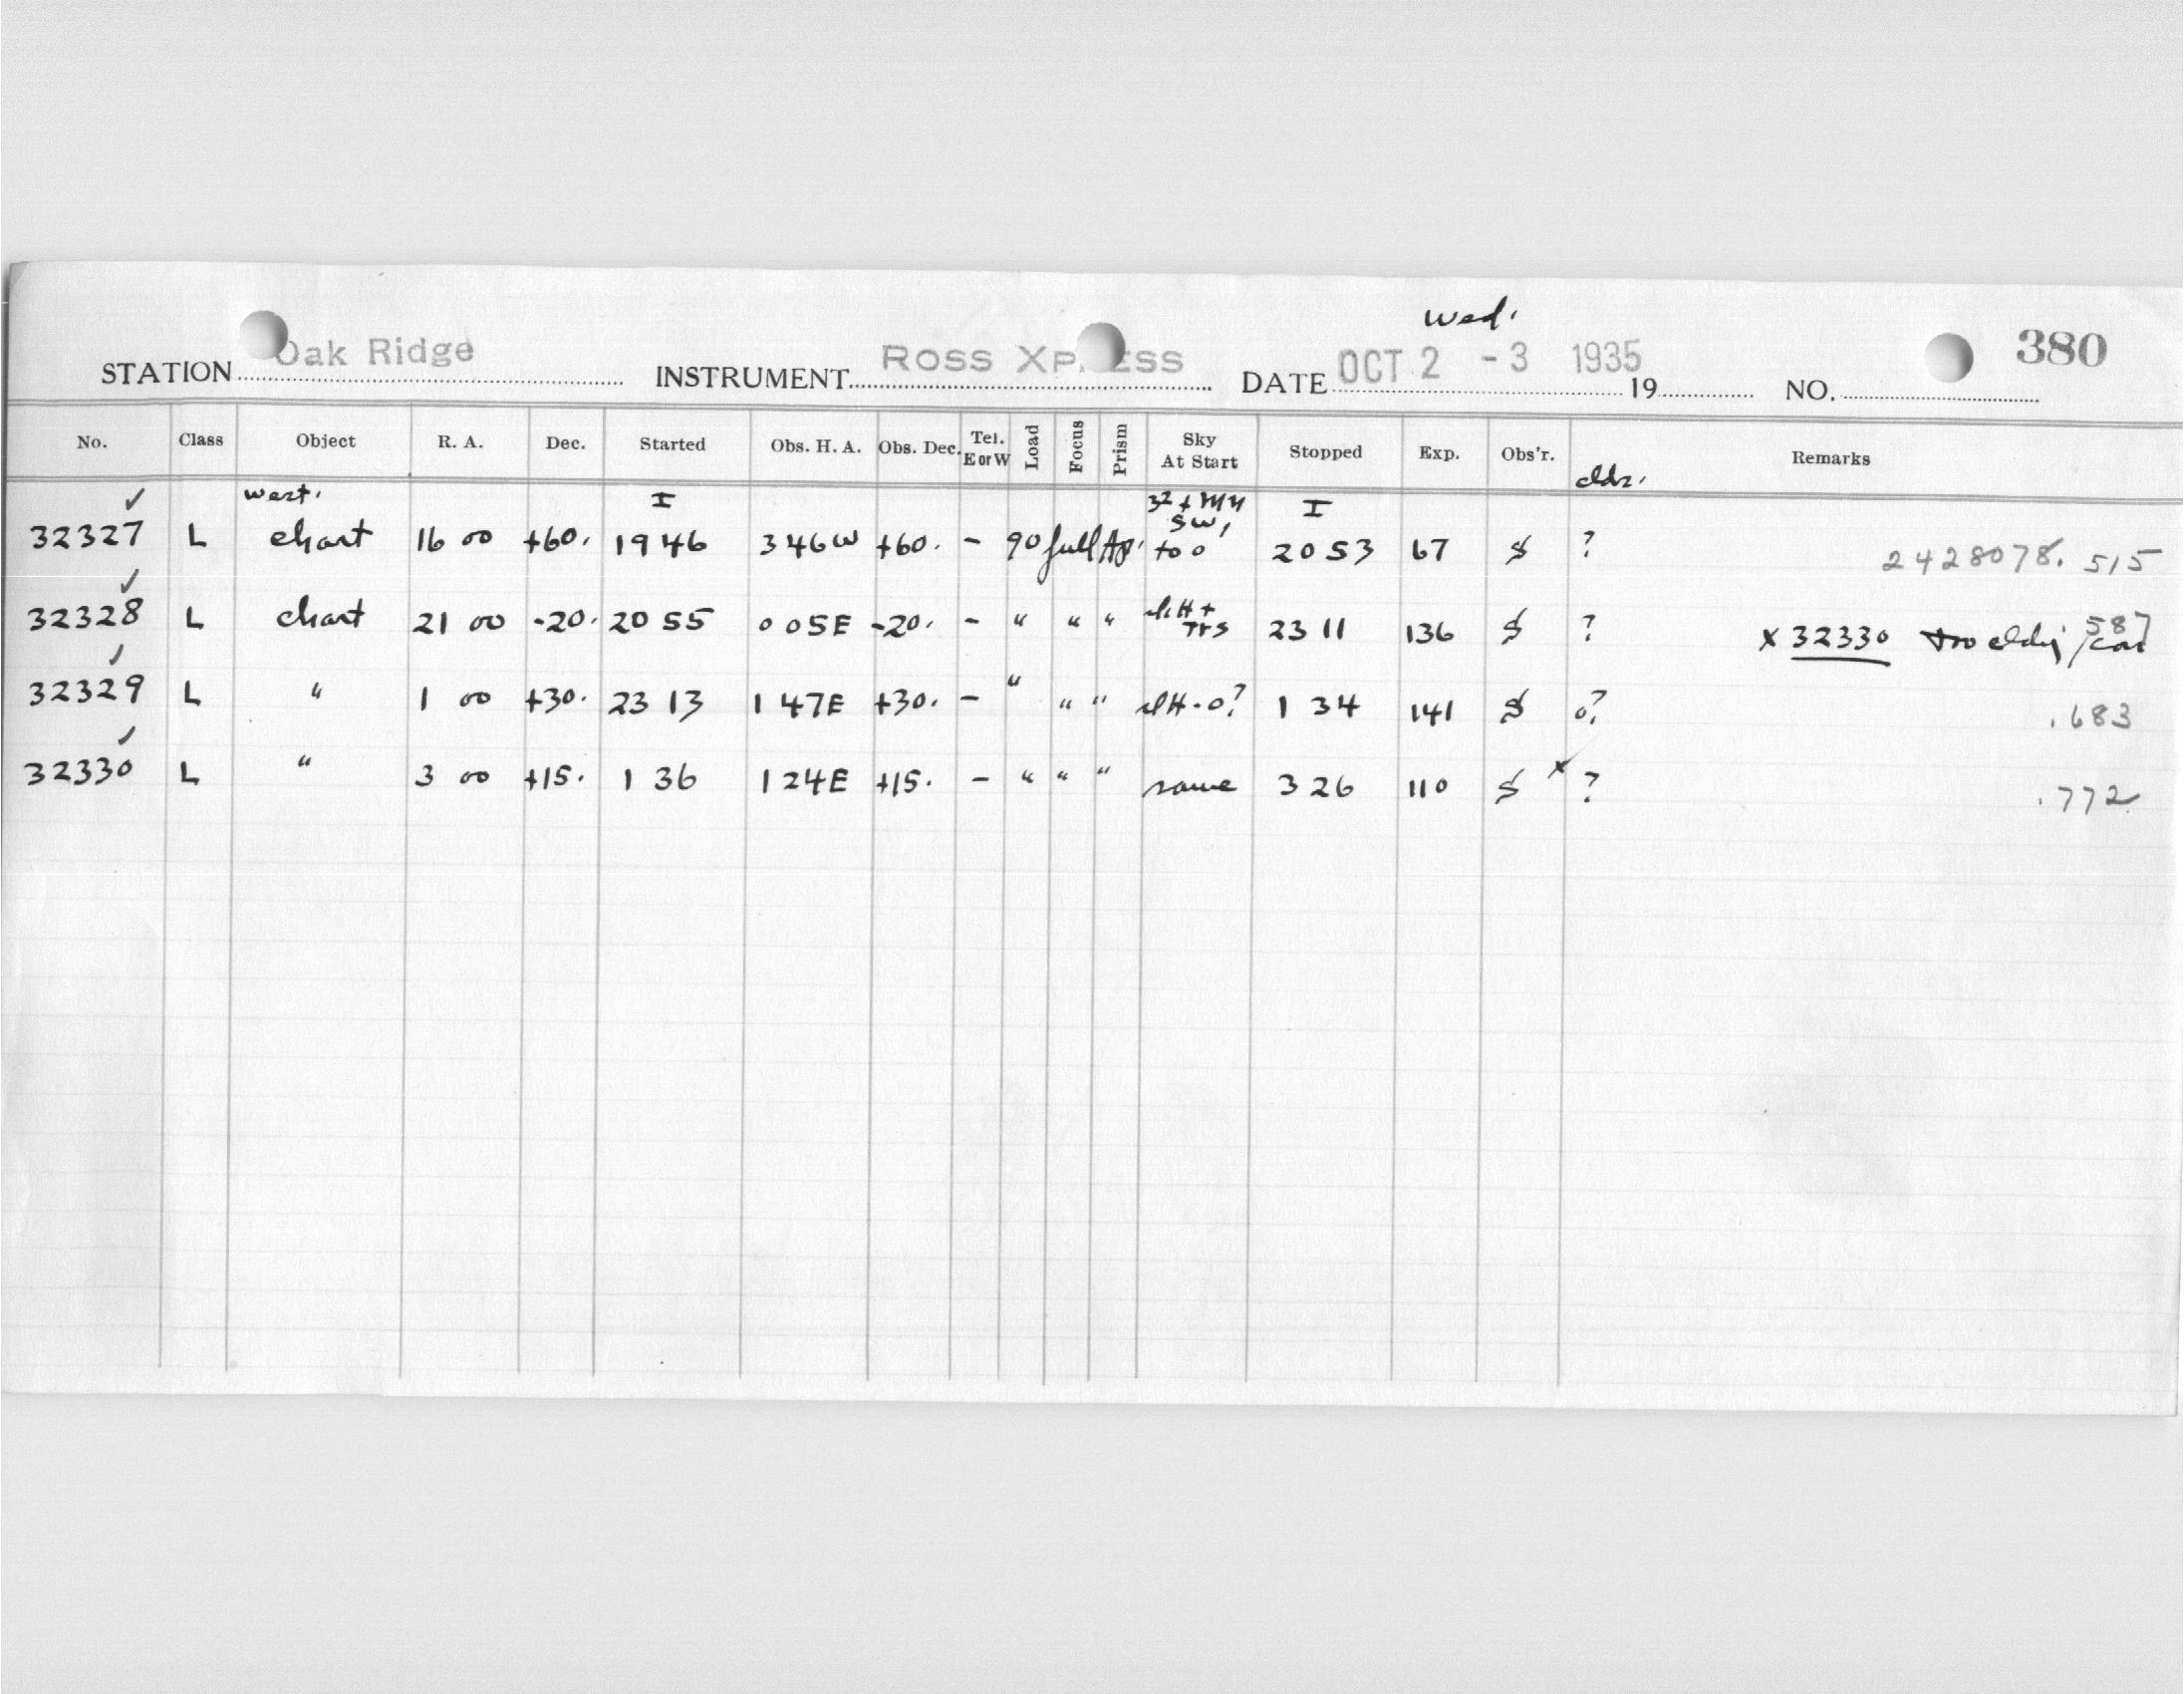 Wed.
STATION Oak Ridge INSTRUMENT ROSS XP ESS DATE OCT 2 - 3 1935 19 NO. 380
No. Class Object R. A. Dec. Started Obs. H. A. Obs. Dec. Tel. E or W Load Focus Prism Sky At Start Stopped Exp. Obs'r. Remarks
west. I I
32327 ✓ L chart 16 00 +60. 19 46 3 46 W +60. - 90 full Ap. SW, to 0 20 53 67 S ? 2428078. 515
32328 ✓ L chart 21 00 -20. 20 55 0 05 E -20. - " " " 23 11 136 S ? 587
x 32330
32329 ✓ L " 1 00 +30. 23 13 1 47 E +30. - " " " 1 34 141 S 0? .683
32330 ✓ L " 3 00 +15. 1 36 1 24 E +15. - " " " same 3 26 110 S x ? .772